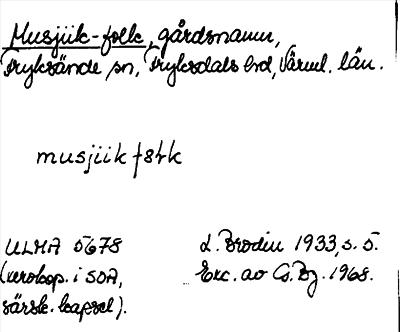 Musjiik-folk, gårdsnamn,
Fryksände sn, Fryksdals hrd, Värml. län.
musjiik fölk
ULMA 5678
(xerokop. i SOA,
särsk. kapsel).
L. Brodin 1933, s. 5.
Exc. av G. Bg. 1968.